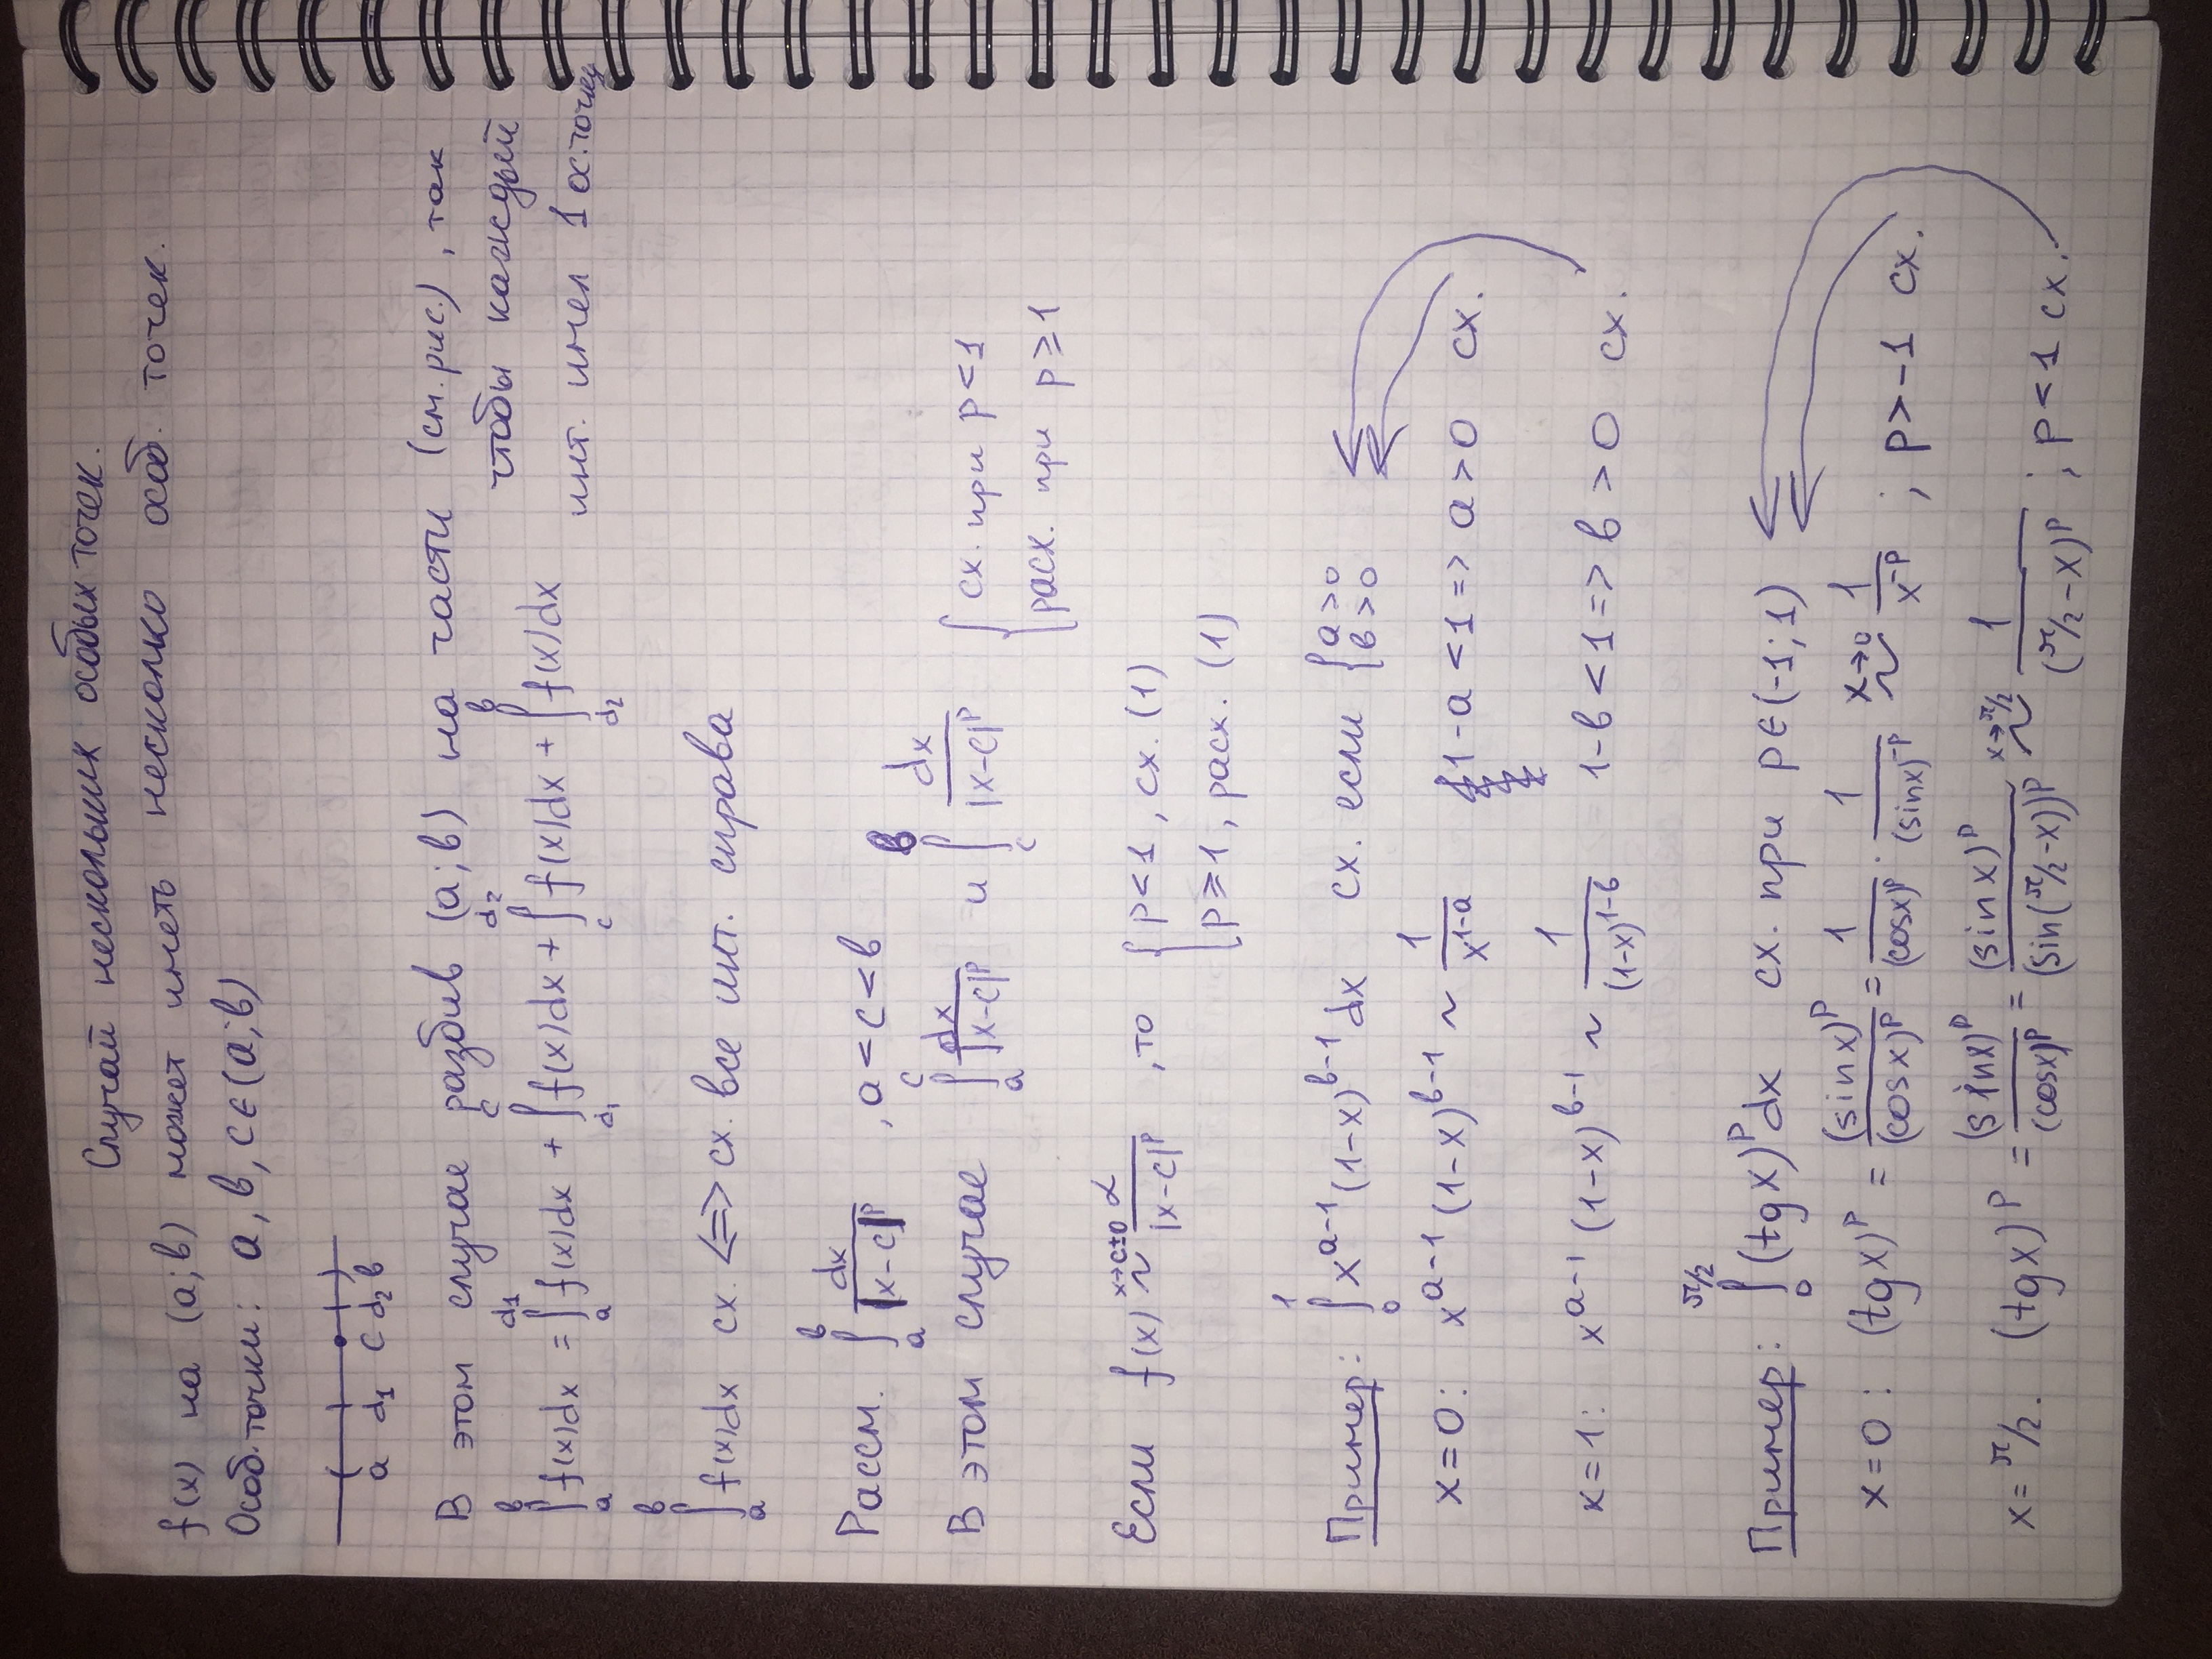 Случай нескольких особых точек.
f(x) на (a;b) может иметь несколко особ. точек.
Особ. точки: a, b, c∈(a;b)
a d₁ c d₂ b
В этом случае разбив (a;b) на части (см. рис.), так
чтобы каждый
∫ₐᵇ f(x)dx = ∫ₐ^d₁ f(x)dx + ∫_d₁^c f(x)dx + ∫_c^d₂ f(x)dx + ∫_d₂^b f(x)dx
инт. имел 1 ос. точку
∫ₐᵇ f(x)dx сх. <=> сх. все инт. справа
Рассм. ∫ₐᵇ dx/|x-c|^p , a < c < b
В этом случае ∫_a^c dx/|x-c|^p и ∫_c^b dx/|x-c|^p { сх. при p < 1
расх. при p ≥ 1
Если f(x) ~ (x→c±0) α/|x-c|^p , то { p < 1, сх. (1)
p ≥ 1, расх. (1)
Пример: ∫₀¹ x^(a-1) (1-x)^(b-1) dx сх. если { a > 0
b > 0
x=0: x^(a-1) (1-x)^(b-1) ~ 1/x^(1-a) 1-a < 1 => a > 0 сх.
x=1: x^(a-1) (1-x)^(b-1) ~ 1/(1-x)^(1-b) 1-b < 1 => b > 0 сх.
Пример: ∫₀^(π/2) (tg x)^p dx сх. при p∈(-1;1)
x=0: (tg x)^p = (sin x)^p/(cos x)^p = 1/(cos x)^p · 1/(sin x)^(-p) ~ (x→0) 1/x^(-p) ; p > -1 сх.
x=π/2. (tg x)^p = (sin x)^p/(cos x)^p = (sin x)^p/(sin(π/2-x))^p ~ (x→π/2) 1/(π/2-x)^p ; p < 1 сх.